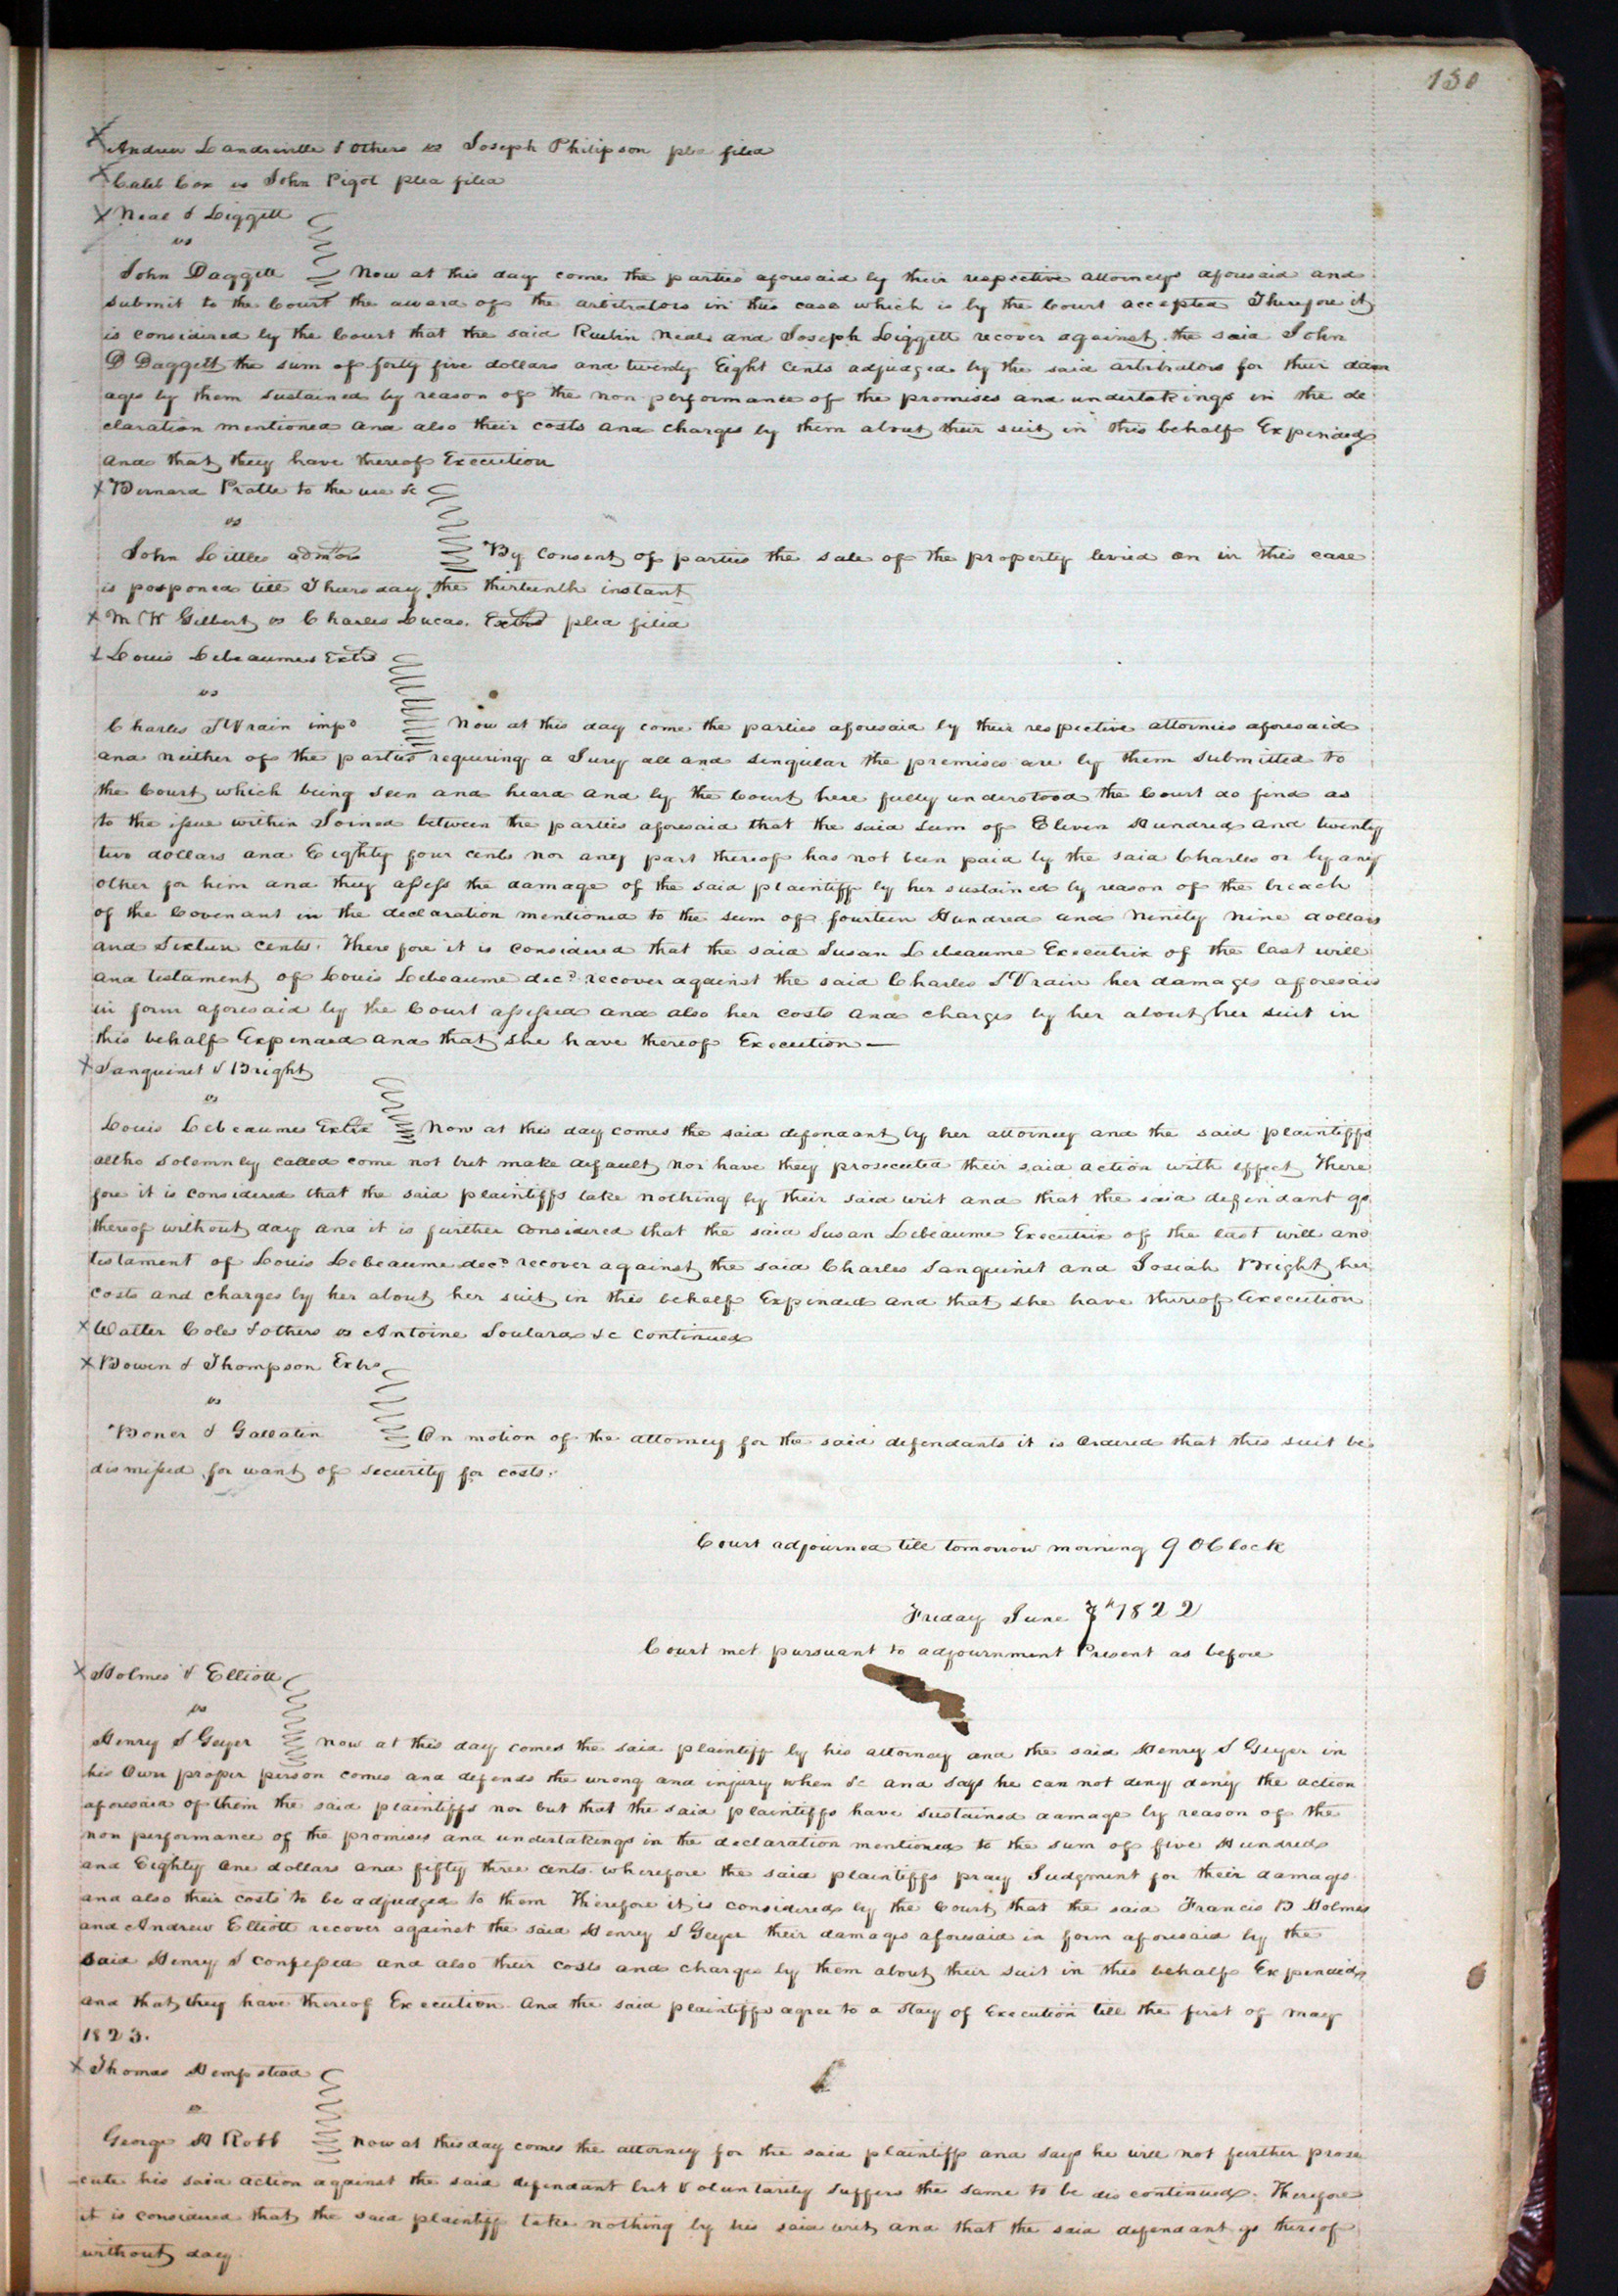 130
Andrew Landreville & others vs Joseph Philipson plea filed
Caleb Cox vs John Pigot plea filed
Neal & Liggett
vs
John Daggett Now at this day come the parties aforesaid by their respective attorneys aforesaid and
submit to the Court the award of the arbitrators in this case which is by the Court accepted Therefore it
is considered by the Court that the said Reubin Neal and Joseph Liggett recover against the said John
D Daggett the sum of forty five dollars and twenty Eight Cents adjudged by the said arbitrators for their dam
ages by them sustained by reason of the non performance of the promises and undertakings in the de
claration mentioned and also their costs and charges by them about their suit in this behalf Expended
and that they have thereof Execution
Bernard Pratte to the use &c
vs
John Littles admors By Consent of parties the sale of the property levied on in this case
is posponed till Thursday the thirteenth instant
M W Gilbert vs Charles Lucas. Extrs plea filed
Louis Lebeaumes Extrs
vs
Charles StVrain impd Now at this day come the parties aforesaid by their respective attornies aforesaid
and neither of the parties requiring a Jury all and singular the premises are by them submitted to
the Court which being seen and heard and by the Court here fully understood the Court do find as
to the issue within Joined between the parties aforesaid that the said sum of Eleven Hundred and twenty
two dollars and Eighty four cents nor any part thereof has not been paid by the said Charles or by any
other for him and they assess the damage of the said plaintiff by her sustained by reason of the breach
of the Covenant in the declaration mentioned to the sum of fourteen Hundred and Ninety nine dollars
and Sixteen Cents. Therefore it is Considered that the said Susan Lebeaume Executrix of the last will
and testament of Louis Lebeaume decd recover against the said Charles StVrain her damages aforesaid
in form aforesaid by the Court assessed and also her costs and charges by her about her suit in
this behalf Expended and that she have thereof Execution—
Sanguinet & Bright
vs
Louis Lebeaumes Extrx Now at this day comes the said defendant by her attorney and the said plaintiffs
altho Solemnly called come not but make default nor have they prosecuted their said action with effect There
fore it is considered that the said plaintiffs take nothing by their said writ and that the said defendant go
thereof without day and it is further Considered that the said Susan Lebeaume Executrix of the last will and
testament of Louis Lebeaume decd recover against the said Charles Sanguinet and Josiah Bright her
costs and charges by her about her suit in this behalf Expended and that she have thereof Execution
Walter Coles & others vs Antoine Soulard &c Continued
Bowen & Thompson Extrs
vs
Boner & Gallatin On motion of the attorney for the said defendants it is Ordered that this suit be
dismissed for want of security for costs.
Court adjourned till tomorrow morning 9 OClock
Friday June 7h 1822
Court met pursuant to adjournment Present as before
Holmes & Elliott
vs
Henry S Geyer Now at this day comes the said plaintiff by his attorney and the said Henry S Geyer in
his Own proper person comes and defends the wrong and injury when &c and says he can not deny deny the action
aforesaid of them the said plaintiffs nor but that the said plaintiffs have sustained damage by reason of the
non performance of the promises and undertakings in the declaration mentioned to the sum of five Hundred
and Eighty One dollars and fifty three cents. wherefore the said plaintiffs pray Judgment for their damages
and also their costs to be adjudged to them Therefore it is considered by the Court that the said Francis B Holmes
and Andrew Elliott recover against the said Henry S Geyer their damages aforesaid in form aforesaid by the
said Henry S confessed and also their costs and charges by them about their suit in this behalf Expended
and that they have thereof Execution. And the said plaintiffs agree to a Stay of Execution till the first of may
1823.
Thomas Hempstead
vs
George H Robb Now at this day comes the attorney for the said plaintiff and says he will not further prose
cute his said action against the said defendant but Voluntarily suffers the same to be discontinued. Therefore
it is considered that the said plaintiff take nothing by his said writ and that the said defendant go thereof
without day